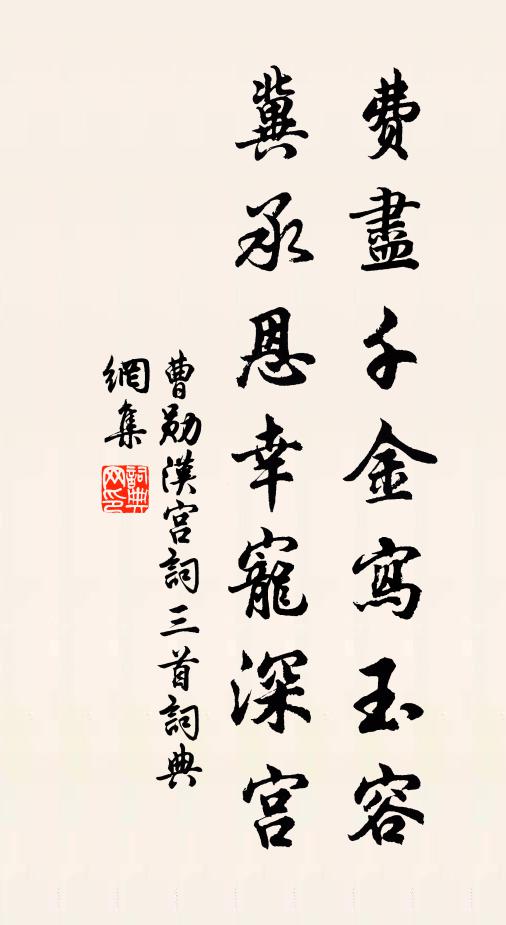 費盡千金寫玉容
冀承恩幸寵深宮
曹勛漢宮詞三首詞典
網集
詞典網印